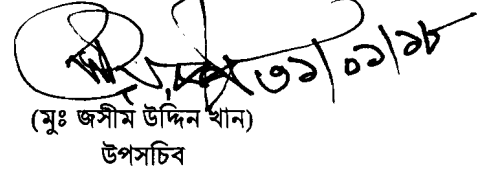 ৩১/০১/১৮
(মুঃ জসীম উদ্দিন খান)
উপসচিব